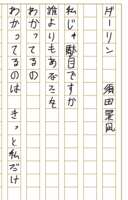 ダーリン　須田景凪
私じゃ駄目ですか
誰よりもあなたを
わかってるの
わかってるのは　きっと私だけ